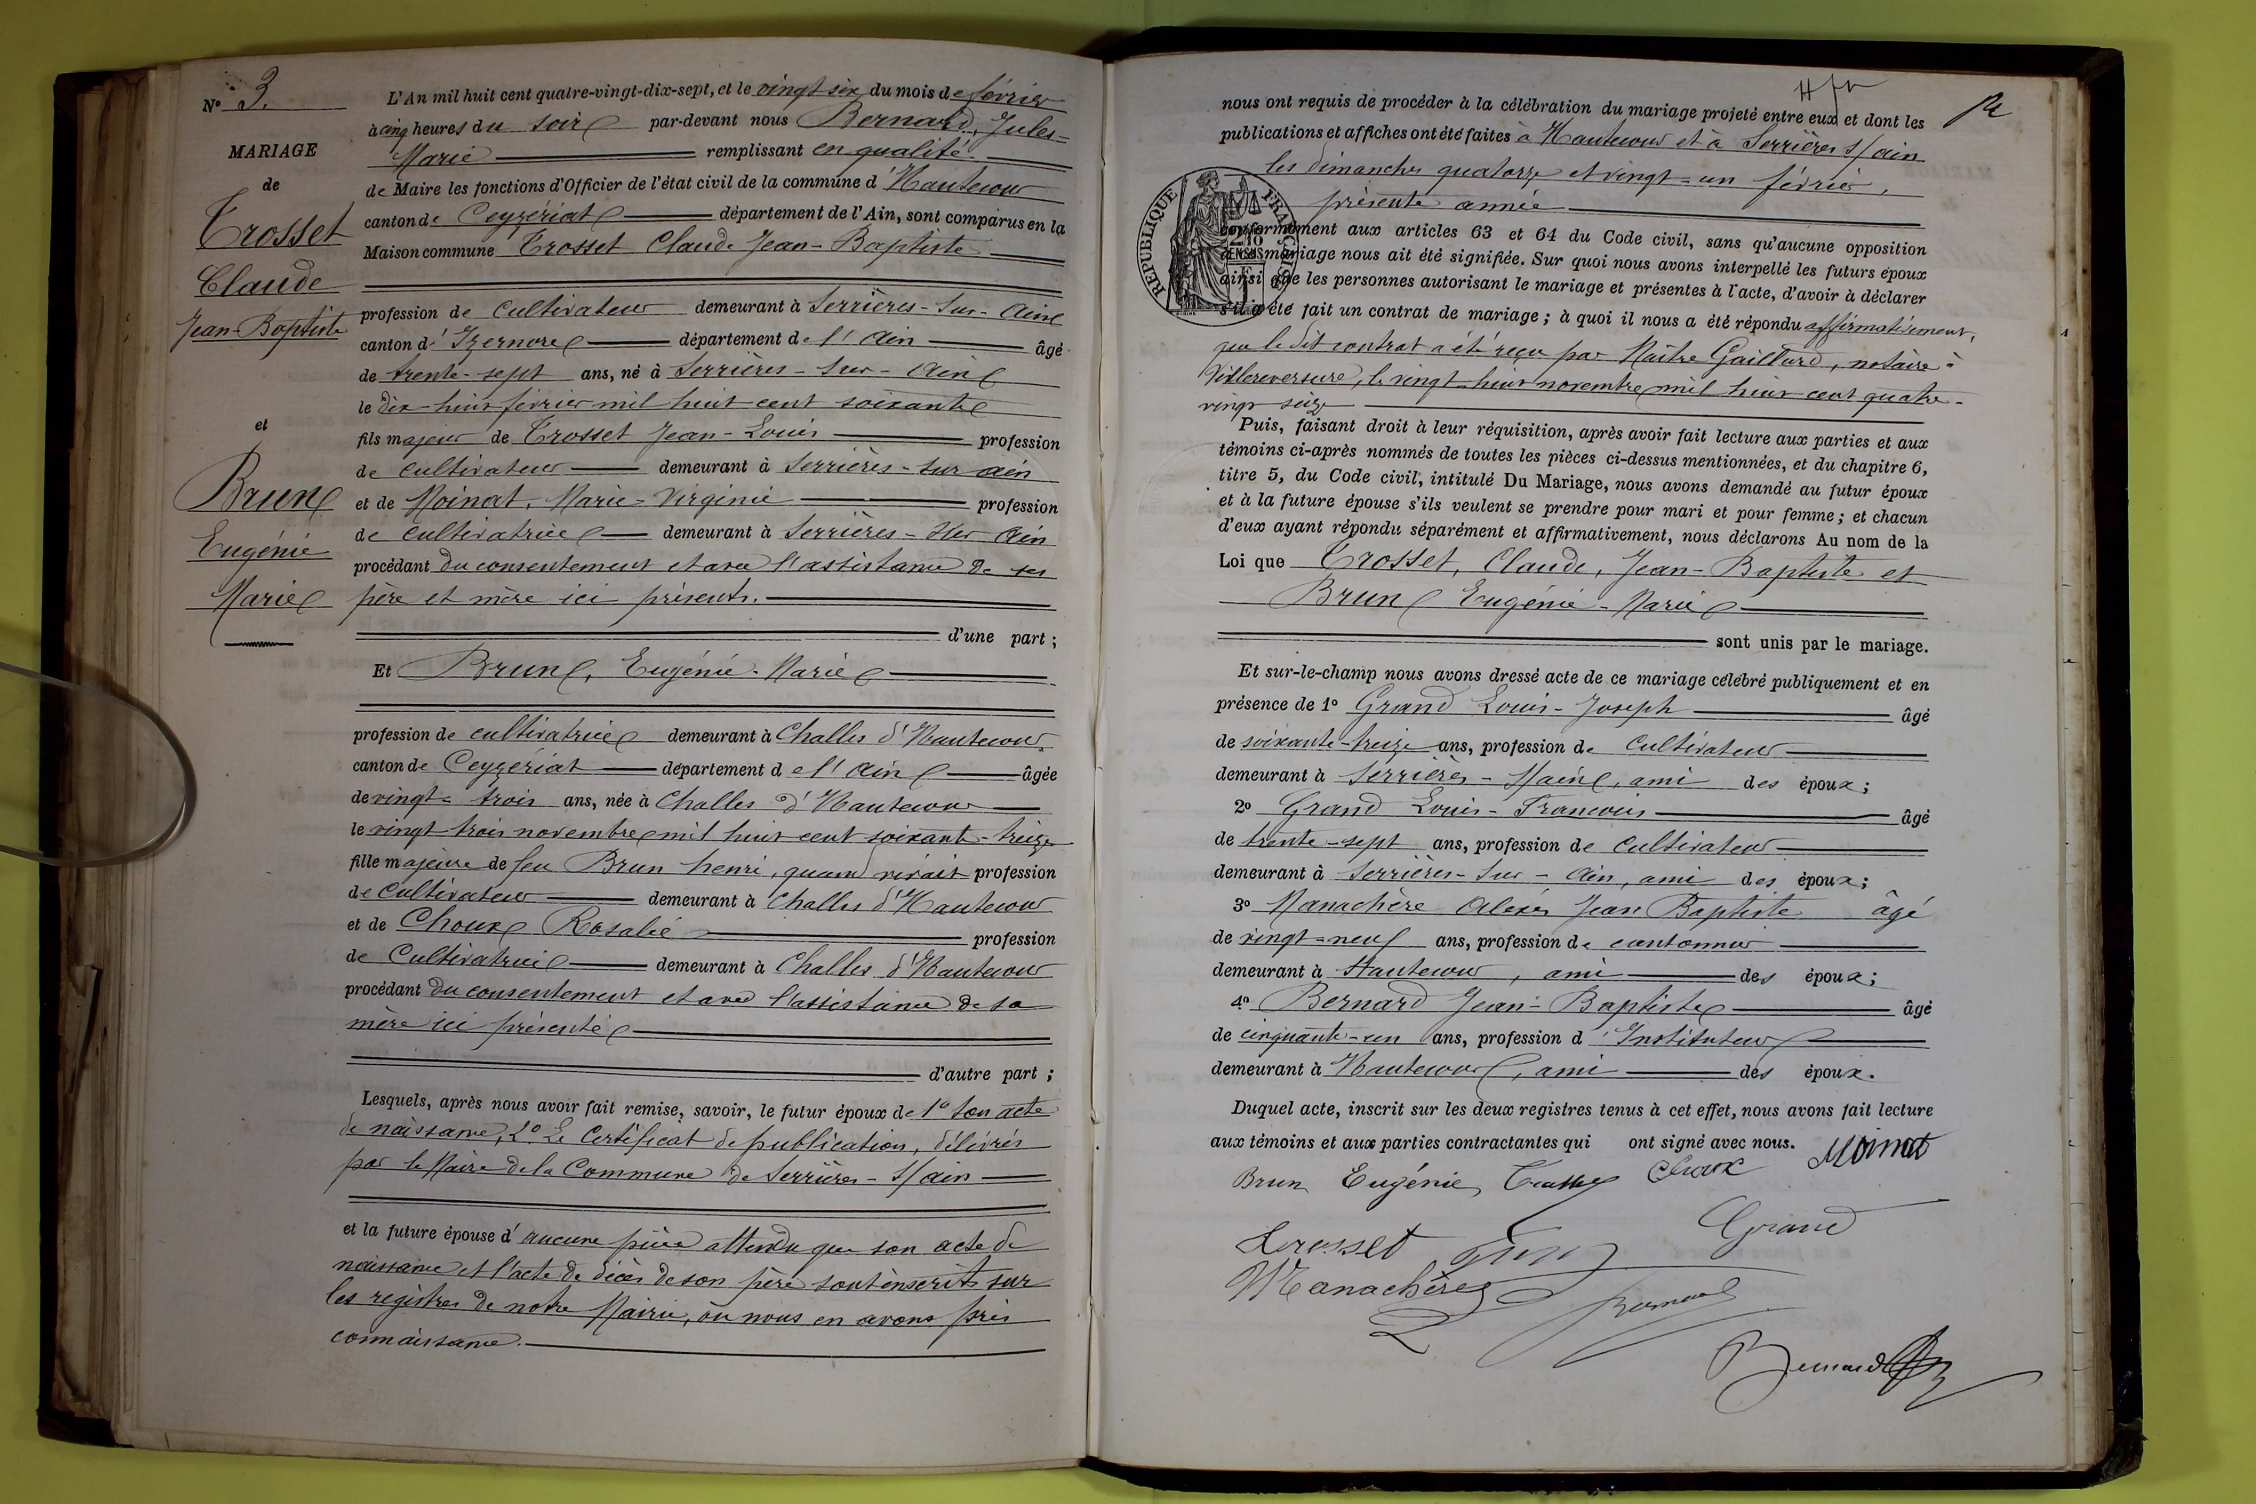 N° 3.
MARIAGE
de
Trosset
Claude
Jean-Baptiste
et
Brun
Eugénie
Marie
L'An mil huit cent quatre-vingt-dix-sept, et le vingt six du mois de février
à cinq heures du soir par-devant nous Bernard, Jules-
Marie remplissant en qualité
de Maire les fonctions d'Officier de l'état civil de la commune d'Hautecour
canton de Ceyzériat département de l'Ain, sont comparus en la
Maison commune Trosset Claude Jean-Baptiste
profession de cultivateur demeurant à Serrières-sur-Ain
canton d'Izernore département de l'Ain âgé
de trente-sept ans, né à Serrières-sur-Ain
le dix-huit février mil huit cent soixante
fils majeur de Trosset Jean-Louis profession
de cultivateur demeurant à Serrières-sur-ain
et de Moinat, Marie-Virginie profession
de cultivatrice demeurant à Serrières-sur Ain
procédant du consentement et avec l'assistance de ses
père et mère ici présents.
d'une part ;
Et Brun, Eugénie-Marie
profession de cultivatrice demeurant à Challes d'Hautecour
canton de Ceyzériat département de l'Ain âgée
de vingt-trois ans, née à Challes d'Hautecour
le vingt trois novembre mil huit cent soixante-treize
fille majeure de feu Brun henri, quand vivait profession
de Cultivateur demeurant à Challes d'Hautecour
et de Choux Rosalie profession
de Cultivatrice demeurant à Challes d'Hautecour
procédant du consentement et avec l'assistance de sa
mère ici présente
d'autre part ;
Lesquels, après nous avoir fait remise, savoir, le futur époux de 1° Son acte
de naissance, 2° Le Certificat de publication, délivrés
par le Maire de la Commune de Serrières-s/ain
et la future épouse d'aucune pièce attendu que son acte de
naissance et l'acte de décès de son père sont inscrits sur
les registres de notre Mairie, où nous en avons pris
connaissance.
nous ont requis de procéder à la célébration du mariage projeté entre eux et dont les
publications et affiches ont été faites à Hautecour et à Serrières s/ain
les dimanches quatorze et vingt-un février,
présente année
RÉPUBLIQUE FRANÇAISE
conformément aux articles 63 et 64 du Code civil, sans qu'aucune opposition
audit mariage nous ait été signifiée. Sur quoi nous avons interpellé les futurs époux
ainsi que les personnes autorisant le mariage et présentes à l'acte, d'avoir à déclarer
s'il a été fait un contrat de mariage ; à quoi il nous a été répondu affirmativement,
que le dit contrat a été reçu par Maître Gaillard, notaire à
Villereversure, le vingt-huit novembre mil huit cent quatre-
vingt seize
Puis, faisant droit à leur réquisition, après avoir fait lecture aux parties et aux
témoins ci-après nommés de toutes les pièces ci-dessus mentionnées, et du chapitre 6,
titre 5, du Code civil, intitulé Du Mariage, nous avons demandé au futur époux
et à la future épouse s'ils veulent se prendre pour mari et pour femme ; et chacun
d'eux ayant répondu séparément et affirmativement, nous déclarons Au nom de la
Loi que Trosset, Claude, Jean-Baptiste et
Brun Eugénie-Marie
sont unis par le mariage.
Et sur-le-champ nous avons dressé acte de ce mariage célébré publiquement et en
présence de 1° Grand Louis-Joseph âgé
de soixante-treize ans, profession de cultivateur
demeurant à Serrières-s/ain, ami des époux ;
2° Grand Louis-Francois âgé
de trente-sept ans, profession de cultivateur
demeurant à Serrières-sur-Ain, ami des époux ;
3° Manachère Alexis Jean Baptiste âgé
de vingt-neuf ans, profession de cantonnier
demeurant à Hautecour, ami des époux ;
4° Bernard Jean-Baptiste âgé
de cinquante-un ans, profession d'Instituteur
demeurant à Hautecour, ami des époux.
Duquel acte, inscrit sur les deux registres tenus à cet effet, nous avons fait lecture
aux témoins et aux parties contractantes qui ont signé avec nous.
Brun Eugénie Trosset Choux Moinat
Trosset Grand
Manachère Bernard
Bernard